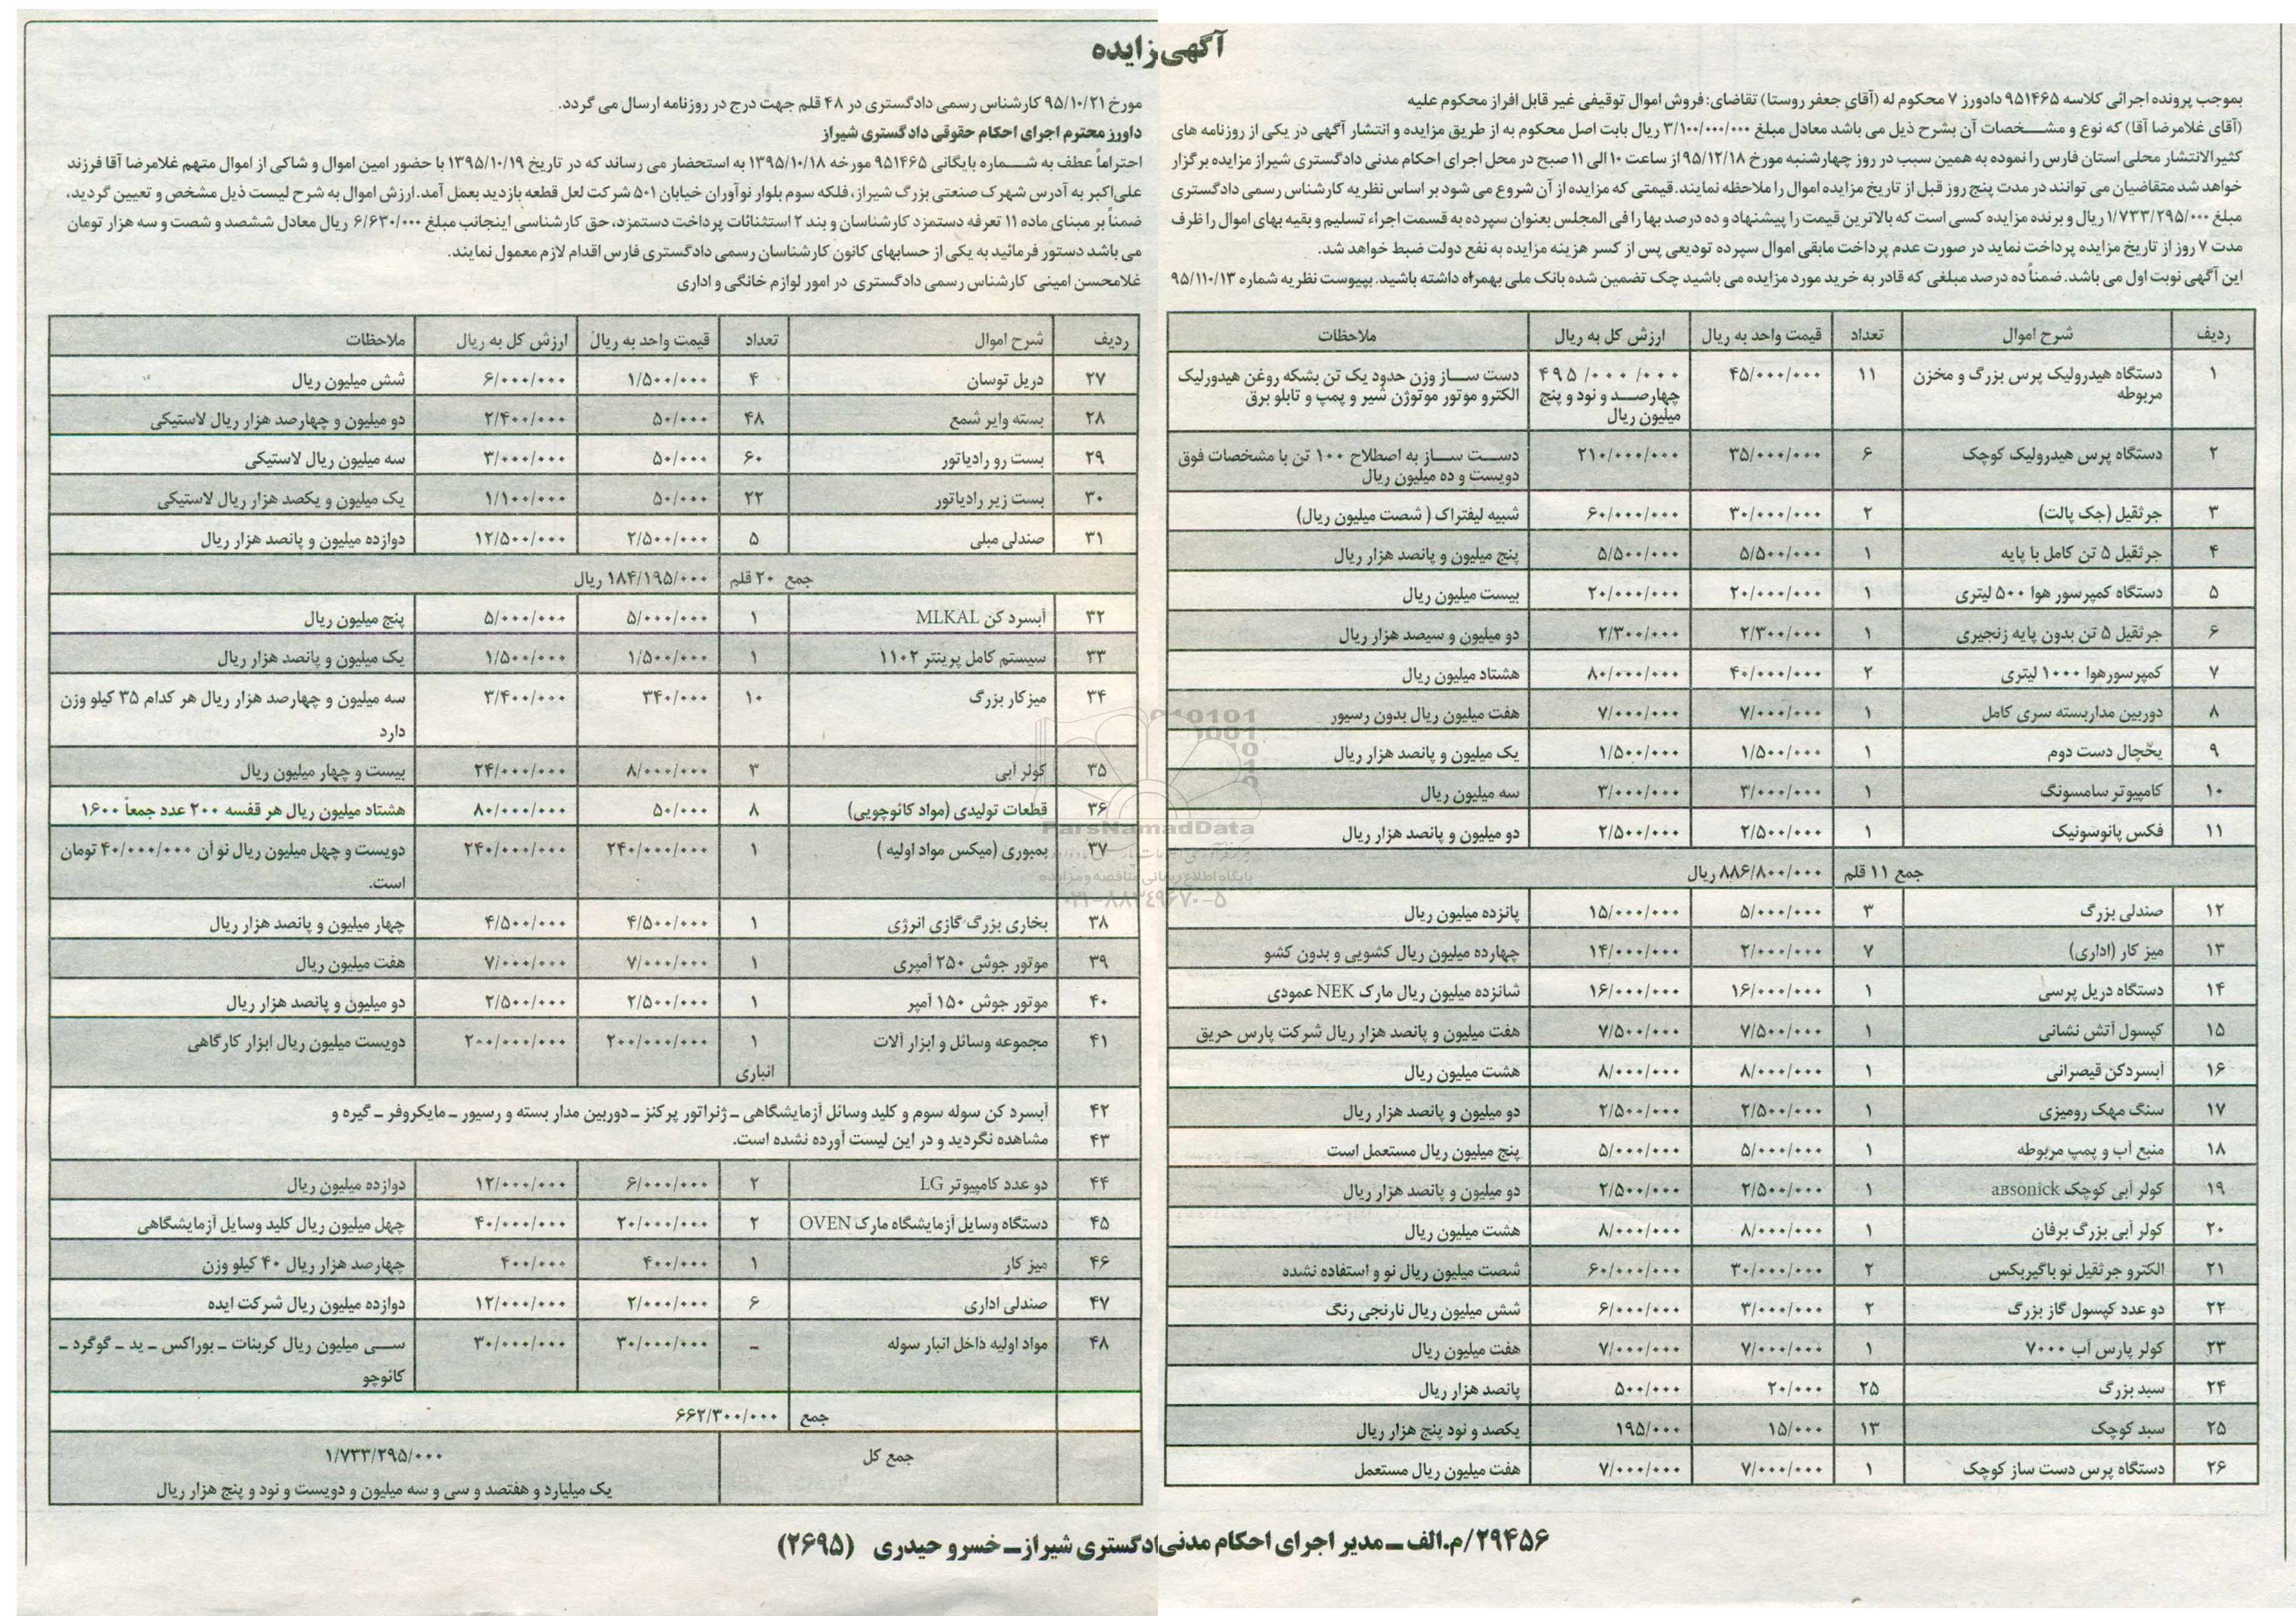 آگهی زایده
بموجب پرونده اجرائی کلاسه ۹۵۱۴۶۵ دادورز ۷ محکوم له (آقای جعفر روستا) تقاضای: فروش اموال توقیفی غیر قابل افراز محکوم علیه
(آقای غلامرضا آقا) که نوع و مشخصات آن بشرح ذیل می باشد معادل مبلغ ۳/۱۰۰/۰۰۰/۰۰۰ ریال بابت اصل محکوم به از طریق مزایده و انتشار آگهی در یکی از روزنامه های
کثیرالانتشار محلی استان فارس را نموده به همین سبب در روز چهارشنبه مورخ ۹۵/۱۲/۱۸ از ساعت ۱۰ الی ۱۱ صبح در محل اجرای احکام مدنی دادگستری شیراز مزایده برگزار
خواهد شد متقاضیان می توانند در مدت پنج روز قبل از تاریخ مزایده اموال را ملاحظه نمایند. قیمتی که مزایده از آن شروع می شود بر اساس نظریه کارشناس رسمی دادگستری
مبلغ ۱/۷۳۳/۲۹۵/۰۰۰ ریال و برنده مزایده کسی است که بالاترین قیمت را پیشنهاد و ده درصد بها را فی المجلس بعنوان سپرده به قسمت اجراء تسلیم و بقیه بهای اموال را ظرف
مدت ۷ روز از تاریخ مزایده پرداخت نماید در صورت عدم پرداخت مابقی اموال سپرده تودیعی پس از کسر هزینه مزایده به نفع دولت ضبط خواهد شد.
این آگهی نوبت اول می باشد. ضمناً ده درصد مبلغی که قادر به خرید مورد مزایده می باشید چک تضمین شده بانک ملی بهمراه داشته باشید. بپیوست نظریه شماره ۹۵/۱۱۰/۱۳
ردیف شرح اموال تعداد قیمت واحد به ریال ارزش کل به ریال ملاحظات
۱ دستگاه هیدرولیک پرس بزرگ و مخزن ۱۱ ۴۵/۰۰۰/۰۰۰ ۴۹۵/۰۰۰/۰۰۰ دست ساز وزن حدود یک تن بشکه روغن هیدورلیک
مربوطه چهارصد و نود و پنج الکترو موتور موتوژن شیر و پمپ و تابلو برق
میلیون ریال
۲ دستگاه پرس هیدرولیک کوچک ۶ ۳۵/۰۰۰/۰۰۰ ۲۱۰/۰۰۰/۰۰۰ دست ساز به اصطلاح ۱۰۰ تن با مشخصات فوق
دویست و ده میلیون ریال
۳ جرثقیل (جک پالت) ۲ ۳۰/۰۰۰/۰۰۰ ۶۰/۰۰۰/۰۰۰ شبیه لیفتراک (شصت میلیون ریال)
۴ جرثقیل ۵ تن کامل با پایه ۱ ۵/۵۰۰/۰۰۰ ۵/۵۰۰/۰۰۰ پنج میلیون و پانصد هزار ریال
۵ دستگاه کمپرسور هوا ۵۰۰ لیتری ۱ ۲۰/۰۰۰/۰۰۰ ۲۰/۰۰۰/۰۰۰ بیست میلیون ریال
۶ جرثقیل ۵ تن بدون پایه زنجیری ۱ ۲/۳۰۰/۰۰۰ ۲/۳۰۰/۰۰۰ دو میلیون و سیصد هزار ریال
۷ کمپرسورهوا ۱۰۰۰ لیتری ۲ ۴۰/۰۰۰/۰۰۰ ۸۰/۰۰۰/۰۰۰ هشتاد میلیون ریال
۸ دوربین مداربسته سری کامل ۱ ۷/۰۰۰/۰۰۰ ۷/۰۰۰/۰۰۰ هفت میلیون ریال بدون رسیور
۹ یخچال دست دوم ۱ ۱/۵۰۰/۰۰۰ ۱/۵۰۰/۰۰۰ یک میلیون و پانصد هزار ریال
۱۰ کامپیوتر سامسونگ ۱ ۳/۰۰۰/۰۰۰ ۳/۰۰۰/۰۰۰ سه میلیون ریال
۱۱ فکس پانوسونیک ۱ ۲/۵۰۰/۰۰۰ ۲/۵۰۰/۰۰۰ دو میلیون و پانصد هزار ریال
جمع ۱۱ قلم ۸۸۶/۸۰۰/۰۰۰ ریال
۱۲ صندلی بزرگ ۳ ۵/۰۰۰/۰۰۰ ۱۵/۰۰۰/۰۰۰ پانزده میلیون ریال
۱۳ میز کار (اداری) ۷ ۲/۰۰۰/۰۰۰ ۱۴/۰۰۰/۰۰۰ چهارده میلیون ریال کشویی و بدون کشو
۱۴ دستگاه دریل پرسی ۱ ۱۶/۰۰۰/۰۰۰ ۱۶/۰۰۰/۰۰۰ شانزده میلیون ریال مارک NEK عمودی
۱۵ کپسول آتش نشانی ۱ ۷/۵۰۰/۰۰۰ ۷/۵۰۰/۰۰۰ هفت میلیون و پانصد هزار ریال شرکت پارس حریق
۱۶ آبسردکن قیصرانی ۱ ۸/۰۰۰/۰۰۰ ۸/۰۰۰/۰۰۰ هشت میلیون ریال
۱۷ سنگ مهک رومیزی ۱ ۲/۵۰۰/۰۰۰ ۲/۵۰۰/۰۰۰ دو میلیون و پانصد هزار ریال
۱۸ منبع آب و پمپ مربوطه ۱ ۵/۰۰۰/۰۰۰ ۵/۰۰۰/۰۰۰ پنج میلیون ریال مستعمل است
۱۹ کولر آبی کوچک aBsonick ۱ ۲/۵۰۰/۰۰۰ ۲/۵۰۰/۰۰۰ دو میلیون و پانصد هزار ریال
۲۰ کولر آبی بزرگ برفان ۱ ۸/۰۰۰/۰۰۰ ۸/۰۰۰/۰۰۰ هشت میلیون ریال
۲۱ الکترو جرثقیل نو باگیربکس ۲ ۳۰/۰۰۰/۰۰۰ ۶۰/۰۰۰/۰۰۰ شصت میلیون ریال نو و استفاده نشده
۲۲ دو عدد کپسول گاز بزرگ ۲ ۳/۰۰۰/۰۰۰ ۶/۰۰۰/۰۰۰ شش میلیون ریال نارنجی رنگ
۲۳ کولر پارس آب ۷۰۰۰ ۱ ۷/۰۰۰/۰۰۰ ۷/۰۰۰/۰۰۰ هفت میلیون ریال
۲۴ سبد بزرگ ۲۵ ۲۰/۰۰۰ ۵۰۰/۰۰۰ پانصد هزار ریال
۲۵ سبد کوچک ۱۳ ۱۵/۰۰۰ ۱۹۵/۰۰۰ یکصد و نود پنج هزار ریال
۲۶ دستگاه پرس دست ساز کوچک ۱ ۷/۰۰۰/۰۰۰ ۷/۰۰۰/۰۰۰ هفت میلیون ریال مستعمل
مورخ ۹۵/۱۰/۲۱ کارشناس رسمی دادگستری در ۴۸ قلم جهت درج در روزنامه ارسال می گردد.
داورز محترم اجرای احکام حقوقی دادگستری شیراز
احتراماً عطف به شماره بایگانی ۹۵۱۴۶۵ مورخه ۱۳۹۵/۱۰/۱۸ به استحضار می رساند که در تاریخ ۱۳۹۵/۱۰/۱۹ با حضور امین اموال و شاکی از اموال متهم غلامرضا آقا فرزند
علی‌اکبر به آدرس شهرک صنعتی بزرگ شیراز، فلکه سوم بلوار نوآوران خیابان ۵۰۱ شرکت لعل قطعه بازدید بعمل آمد. ارزش اموال به شرح لیست ذیل مشخص و تعیین گردید،
ضمناً بر مبنای ماده ۱۱ تعرفه دستمزد کارشناسان و بند ۲ استثنائات پرداخت دستمزد، حق کارشناسی اینجانب مبلغ ۶/۶۳۰/۰۰۰ ریال معادل ششصد و شصت و سه هزار تومان
می باشد دستور فرمائید به یکی از حسابهای کانون کارشناسان رسمی دادگستری فارس اقدام لازم معمول نمایند.
غلامحسن امینی کارشناس رسمی دادگستری در امور لوازم خانگی و اداری
ردیف شرح اموال تعداد قیمت واحد به ریال ارزش کل به ریال ملاحظات
۲۷ دریل توسان ۴ ۱/۵۰۰/۰۰۰ ۶/۰۰۰/۰۰۰ شش میلیون ریال
۲۸ بسته وایر شمع ۴۸ ۵۰/۰۰۰ ۲/۴۰۰/۰۰۰ دو میلیون و چهارصد هزار ریال لاستیکی
۲۹ بست رو رادیاتور ۶۰ ۵۰/۰۰۰ ۳/۰۰۰/۰۰۰ سه میلیون ریال لاستیکی
۳۰ بست زیر رادیاتور ۲۲ ۵۰/۰۰۰ ۱/۱۰۰/۰۰۰ یک میلیون و یکصد هزار ریال لاستیکی
۳۱ صندلی مبلی ۵ ۲/۵۰۰/۰۰۰ ۱۲/۵۰۰/۰۰۰ دوازده میلیون و پانصد هزار ریال
جمع ۲۰ قلم ۱۸۴/۱۹۵/۰۰۰ ریال
۳۲ آبسرد کن MLKAL ۱ ۵/۰۰۰/۰۰۰ ۵/۰۰۰/۰۰۰ پنج میلیون ریال
۳۳ سیستم کامل پرینتر ۱۱۰۲ ۱ ۱/۵۰۰/۰۰۰ ۱/۵۰۰/۰۰۰ یک میلیون و پانصد هزار ریال
۳۴ میزکار بزرگ ۱۰ ۳۴۰/۰۰۰ ۳/۴۰۰/۰۰۰ سه میلیون و چهارصد هزار ریال هر کدام ۳۵ کیلو وزن
دارد
۳۵ کولر آبی ۳ ۸/۰۰۰/۰۰۰ ۲۴/۰۰۰/۰۰۰ بیست و چهار میلیون ریال
۳۶ قطعات تولیدی (مواد کائوچویی) ۸ ۵۰/۰۰۰ ۸۰/۰۰۰/۰۰۰ هشتاد میلیون ریال هر قفسه ۲۰۰ عدد جمعاً ۱۶۰۰
۳۷ بمبوری (میکس مواد اولیه) ۱ ۲۴۰/۰۰۰/۰۰۰ ۲۴۰/۰۰۰/۰۰۰ دویست و چهل میلیون ریال نو آن ۴۰/۰۰۰/۰۰۰ تومان
است.
۳۸ بخاری بزرگ گازی انرژی ۱ ۴/۵۰۰/۰۰۰ ۴/۵۰۰/۰۰۰ چهار میلیون و پانصد هزار ریال
۳۹ موتور جوش ۲۵۰ آمپری ۱ ۷/۰۰۰/۰۰۰ ۷/۰۰۰/۰۰۰ هفت میلیون ریال
۴۰ موتور جوش ۱۵۰ آمپر ۱ ۲/۵۰۰/۰۰۰ ۲/۵۰۰/۰۰۰ دو میلیون و پانصد هزار ریال
۴۱ مجموعه وسائل و ابزار آلات ۱ ۲۰۰/۰۰۰/۰۰۰ ۲۰۰/۰۰۰/۰۰۰ دویست میلیون ریال ابزار کارگاهی
انباری
۴۲ آبسرد کن سوله سوم و کلید وسائل آزمایشگاهی ـ ژنراتور پرکنز ـ دوربین مدار بسته و رسیور ـ مایکروفر ـ گیره و
۴۳ مشاهده نگردید و در این لیست آورده نشده است.
۴۴ دو عدد کامپیوتر LG ۲ ۶/۰۰۰/۰۰۰ ۱۲/۰۰۰/۰۰۰ دوازده میلیون ریال
۴۵ دستگاه وسایل آزمایشگاه مارک OVEN ۲ ۲۰/۰۰۰/۰۰۰ ۴۰/۰۰۰/۰۰۰ چهل میلیون ریال کلید وسایل آزمایشگاهی
۴۶ میز کار ۱ ۴۰۰/۰۰۰ ۴۰۰/۰۰۰ چهارصد هزار ریال ۴۰ کیلو وزن
۴۷ صندلی اداری ۶ ۲/۰۰۰/۰۰۰ ۱۲/۰۰۰/۰۰۰ دوازده میلیون ریال شرکت ایده
۴۸ مواد اولیه داخل انبار سوله ـ ۳۰/۰۰۰/۰۰۰ ۳۰/۰۰۰/۰۰۰ سی میلیون ریال کربنات ـ بوراکس ـ ید ـ گوگرد ـ
کائوچو
جمع ۶۶۲/۳۰۰/۰۰۰
جمع کل ۱/۷۳۳/۲۹۵/۰۰۰
یک میلیارد و هفتصد و سی و سه میلیون و دویست و نود و پنج هزار ریال
۲۹۴۵۶/م.الف ـ مدیر اجرای احکام مدنی ادگستری شیراز ـ خسرو حیدری (۲۶۹۵)
ParsNamadData
پایگاه اطلاع رسانی مناقصه و مزایده
۰۲۱-۸۸۳۴۹۶۷۰-۵